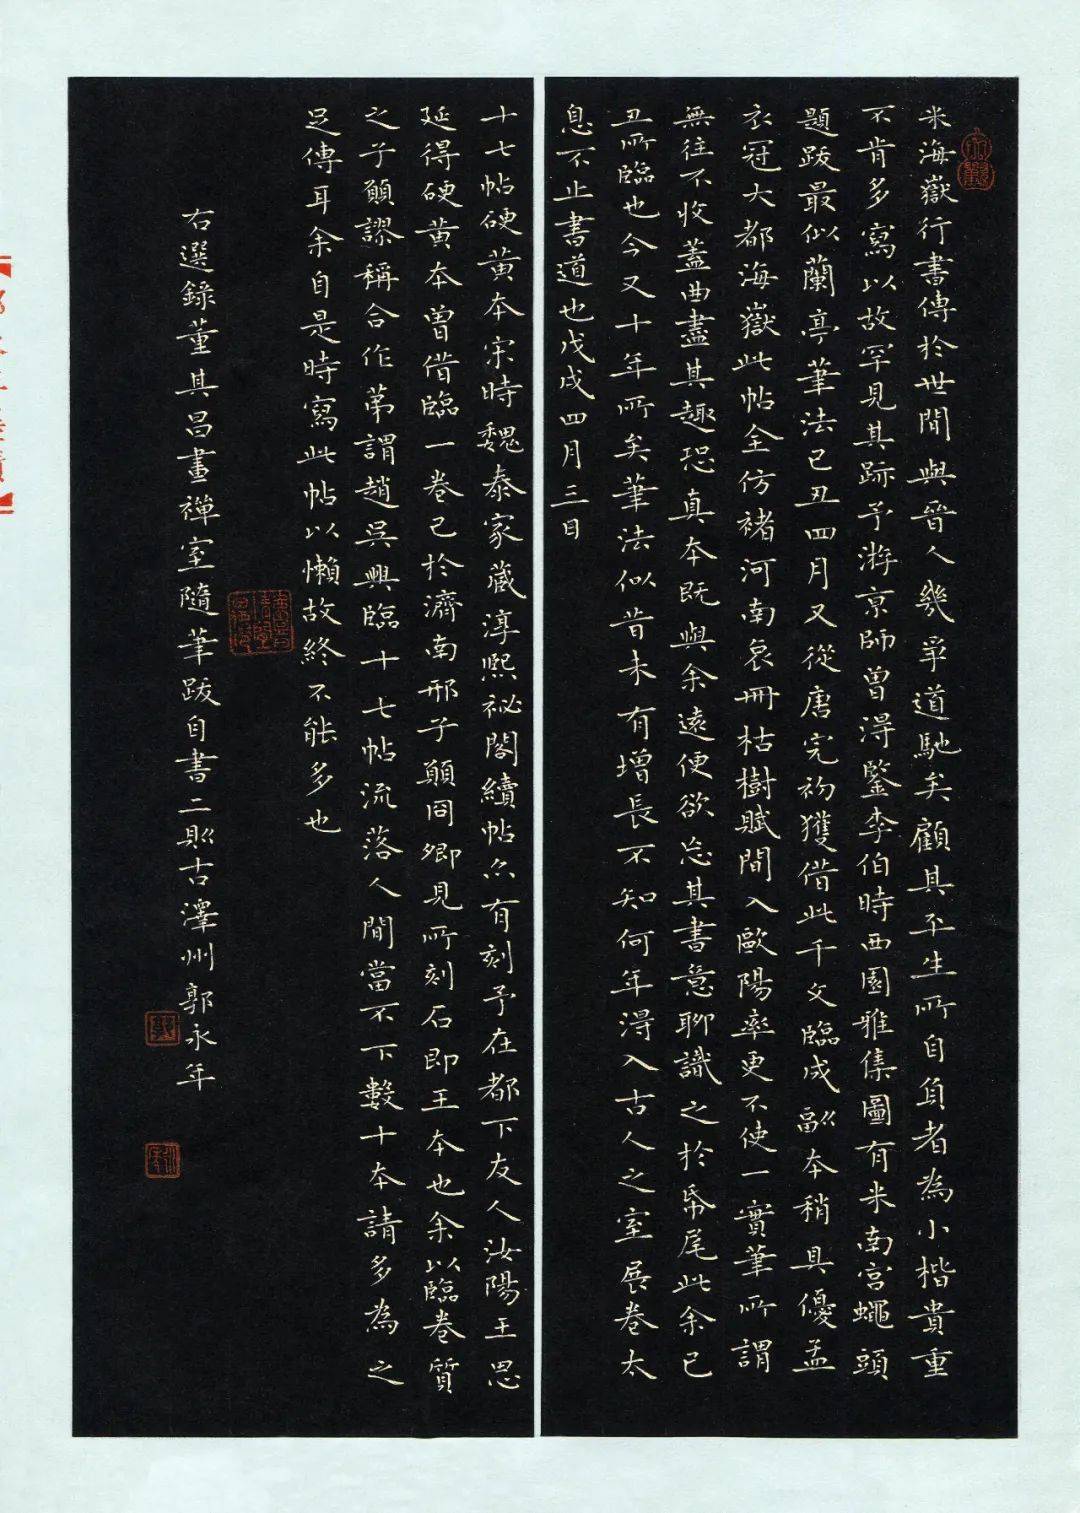 米海嶽行書傳於世間與晉人幾爭道馳矣顧其平生所自負者為小楷貴重
不肯多寫以故罕見其跡予游京師曾得鑒李伯時西園雅集圖有米南宮蠅頭
題跋最似蘭亭筆法己丑四月又從唐完初獲借此千文臨成副本稍具優孟
衣冠大都海嶽此帖全仿褚河南哀冊枯樹賦間入歐陽率更不使一實筆所謂
無往不收蓋曲盡其趣恐真本既與余遠便欲忘其書意聊識之於帋尾此余己
丑所臨也今又十年所矣筆法似昔未有增長不知何年得入古人之室展卷太
息不止書道也戊戌四月三日
十七帖硬黃本宋時魏泰家藏淳熙祕閣續帖亦有刻予在都下友人汝陽王思
延得硬黃本曾借臨一卷已於濟南邢子願同卿見所刻石即王本也余以臨卷質
之子願謬稱合作第謂趙吳興臨十七帖流落人間當不下數十本請多為之
足傳耳余自是時寫此帖以懶故終不能多也
右選錄董其昌畫禪室隨筆跋自書二則古澤州郭永年